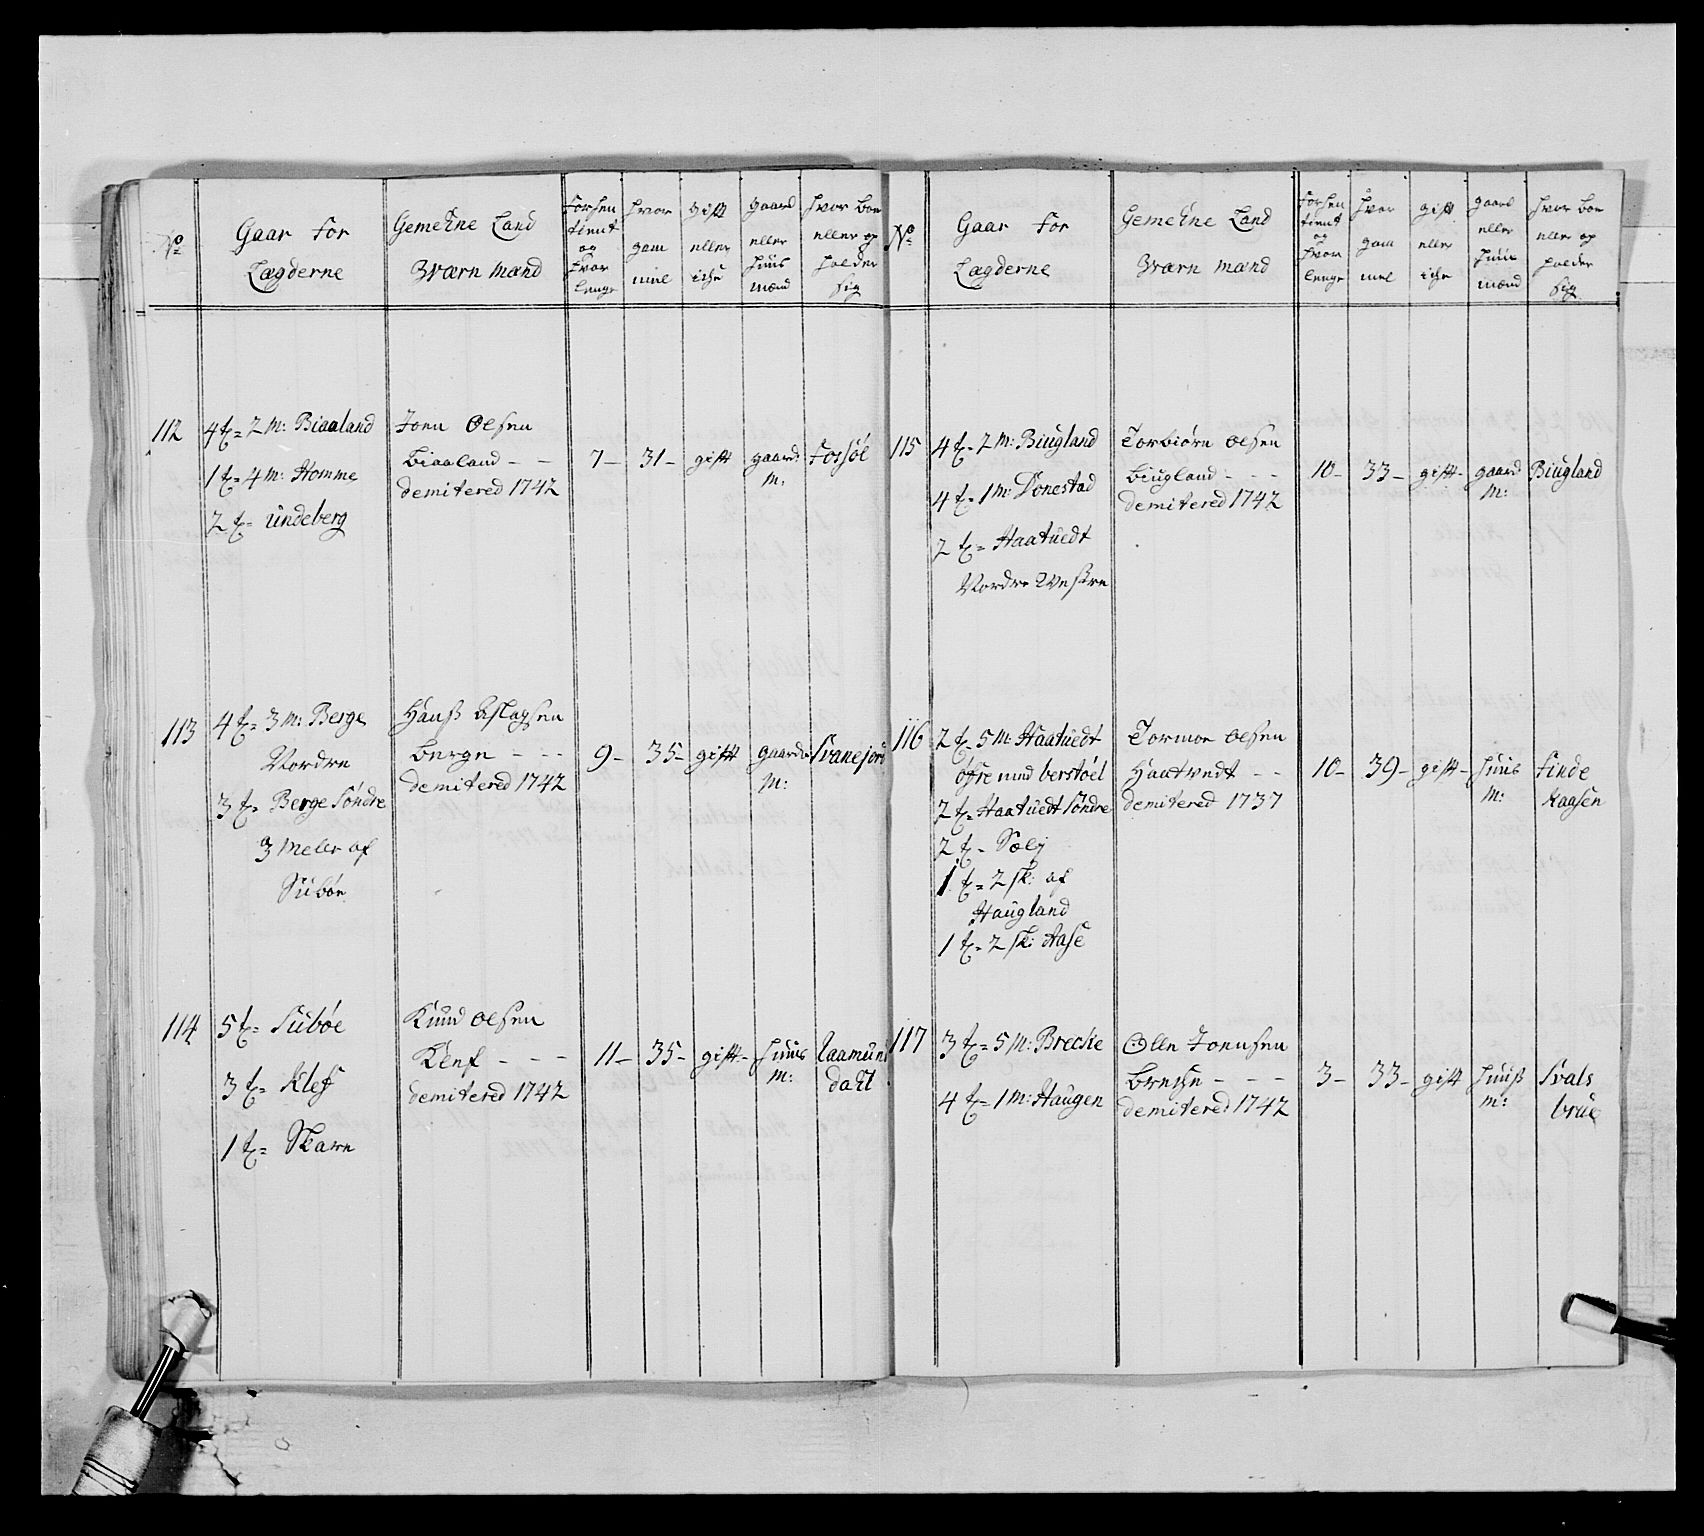 No
Gaar for
Lægderne
Gemeine Land
Wærn mænd
forhen
tient
og
hvor
lenge
hvor
gam
mel
gift
eller
iche
gaard
eller
huus
mænd
hvor boe
eller op
holder
sig
112
4 t= 2 m: Biaaland
1 t= 4 m: Homme
2 t= undeberg
Joen Olsen
biaaland - -
demitered 1742
7- 31- gift gaard
m:
fossøe
113
4 t= 3 m: Berge
Nordre
3 t= Berge Søndre
3 meler af
Suboe
Hanss Aslagsen
berge - - -
demitered 1742
9- 35- gift gaard
m:
Svanejord
114
5 t= Suboe
3 t= Klef
1 t= Skare
Knud Olsen
Klef - - -
demitered 1742
11- 35- gift- huus
m:
Laamuns
dahl
No
Gaar for
Lægderne
Gemeine Land
Wærn mænd
forhen
tient
og
hvor
lenge
hvor
gam
mel
gift
eller
iche
gaard
eller
huus
mænd
hvor boe
eller op
holder
sig
115
4 t= 2 m: Biugland
4 t= 1 m: Lonestad
2 t= Haatuedt
Nordre Westre
Torbiørn Olsen
biugland - - -
demitered 1742
10- 33- gift- gaard
m:
Biugland
116
2 t= 5 m: Haatuedt
øfre med berstøel
2 t= Haatuedt Søndre
2 t= Sælj
1 t= 2 sk: af
Haugland
1 t= 2 sk: Aase
Tormoe Olsen
Haatvedt - -
demitered 1737
10- 39- gift- huus
m:
finde
Kaasen
117
3 t= 5 m: Brecke
4 t= 1 m: Haugen
Olle Joensen
breche - - -
demitered 1742
3- 33- gift huuss
m:
Svals
brue